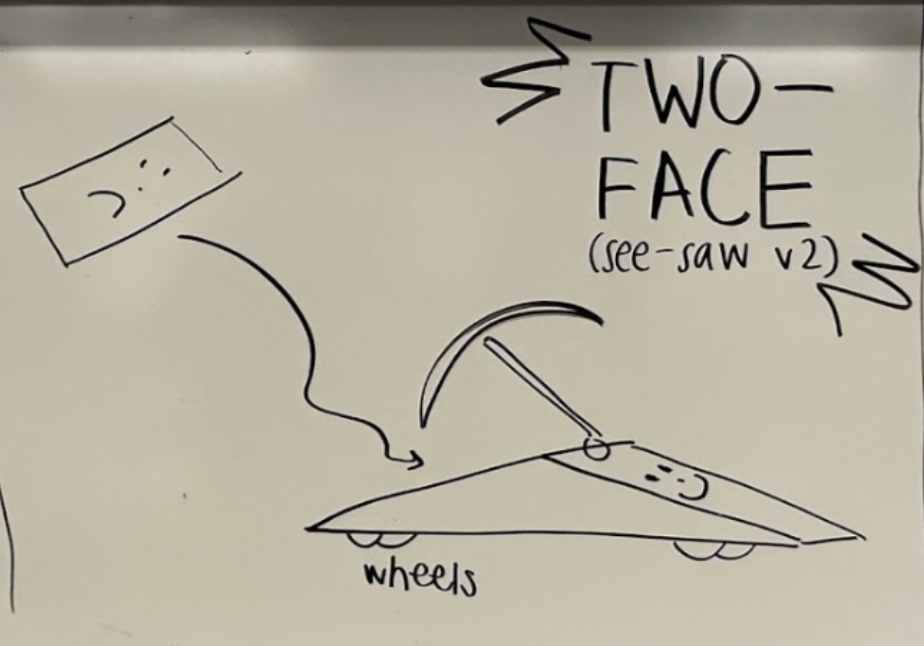 TWO-
FACE
(see-saw v2)
wheels